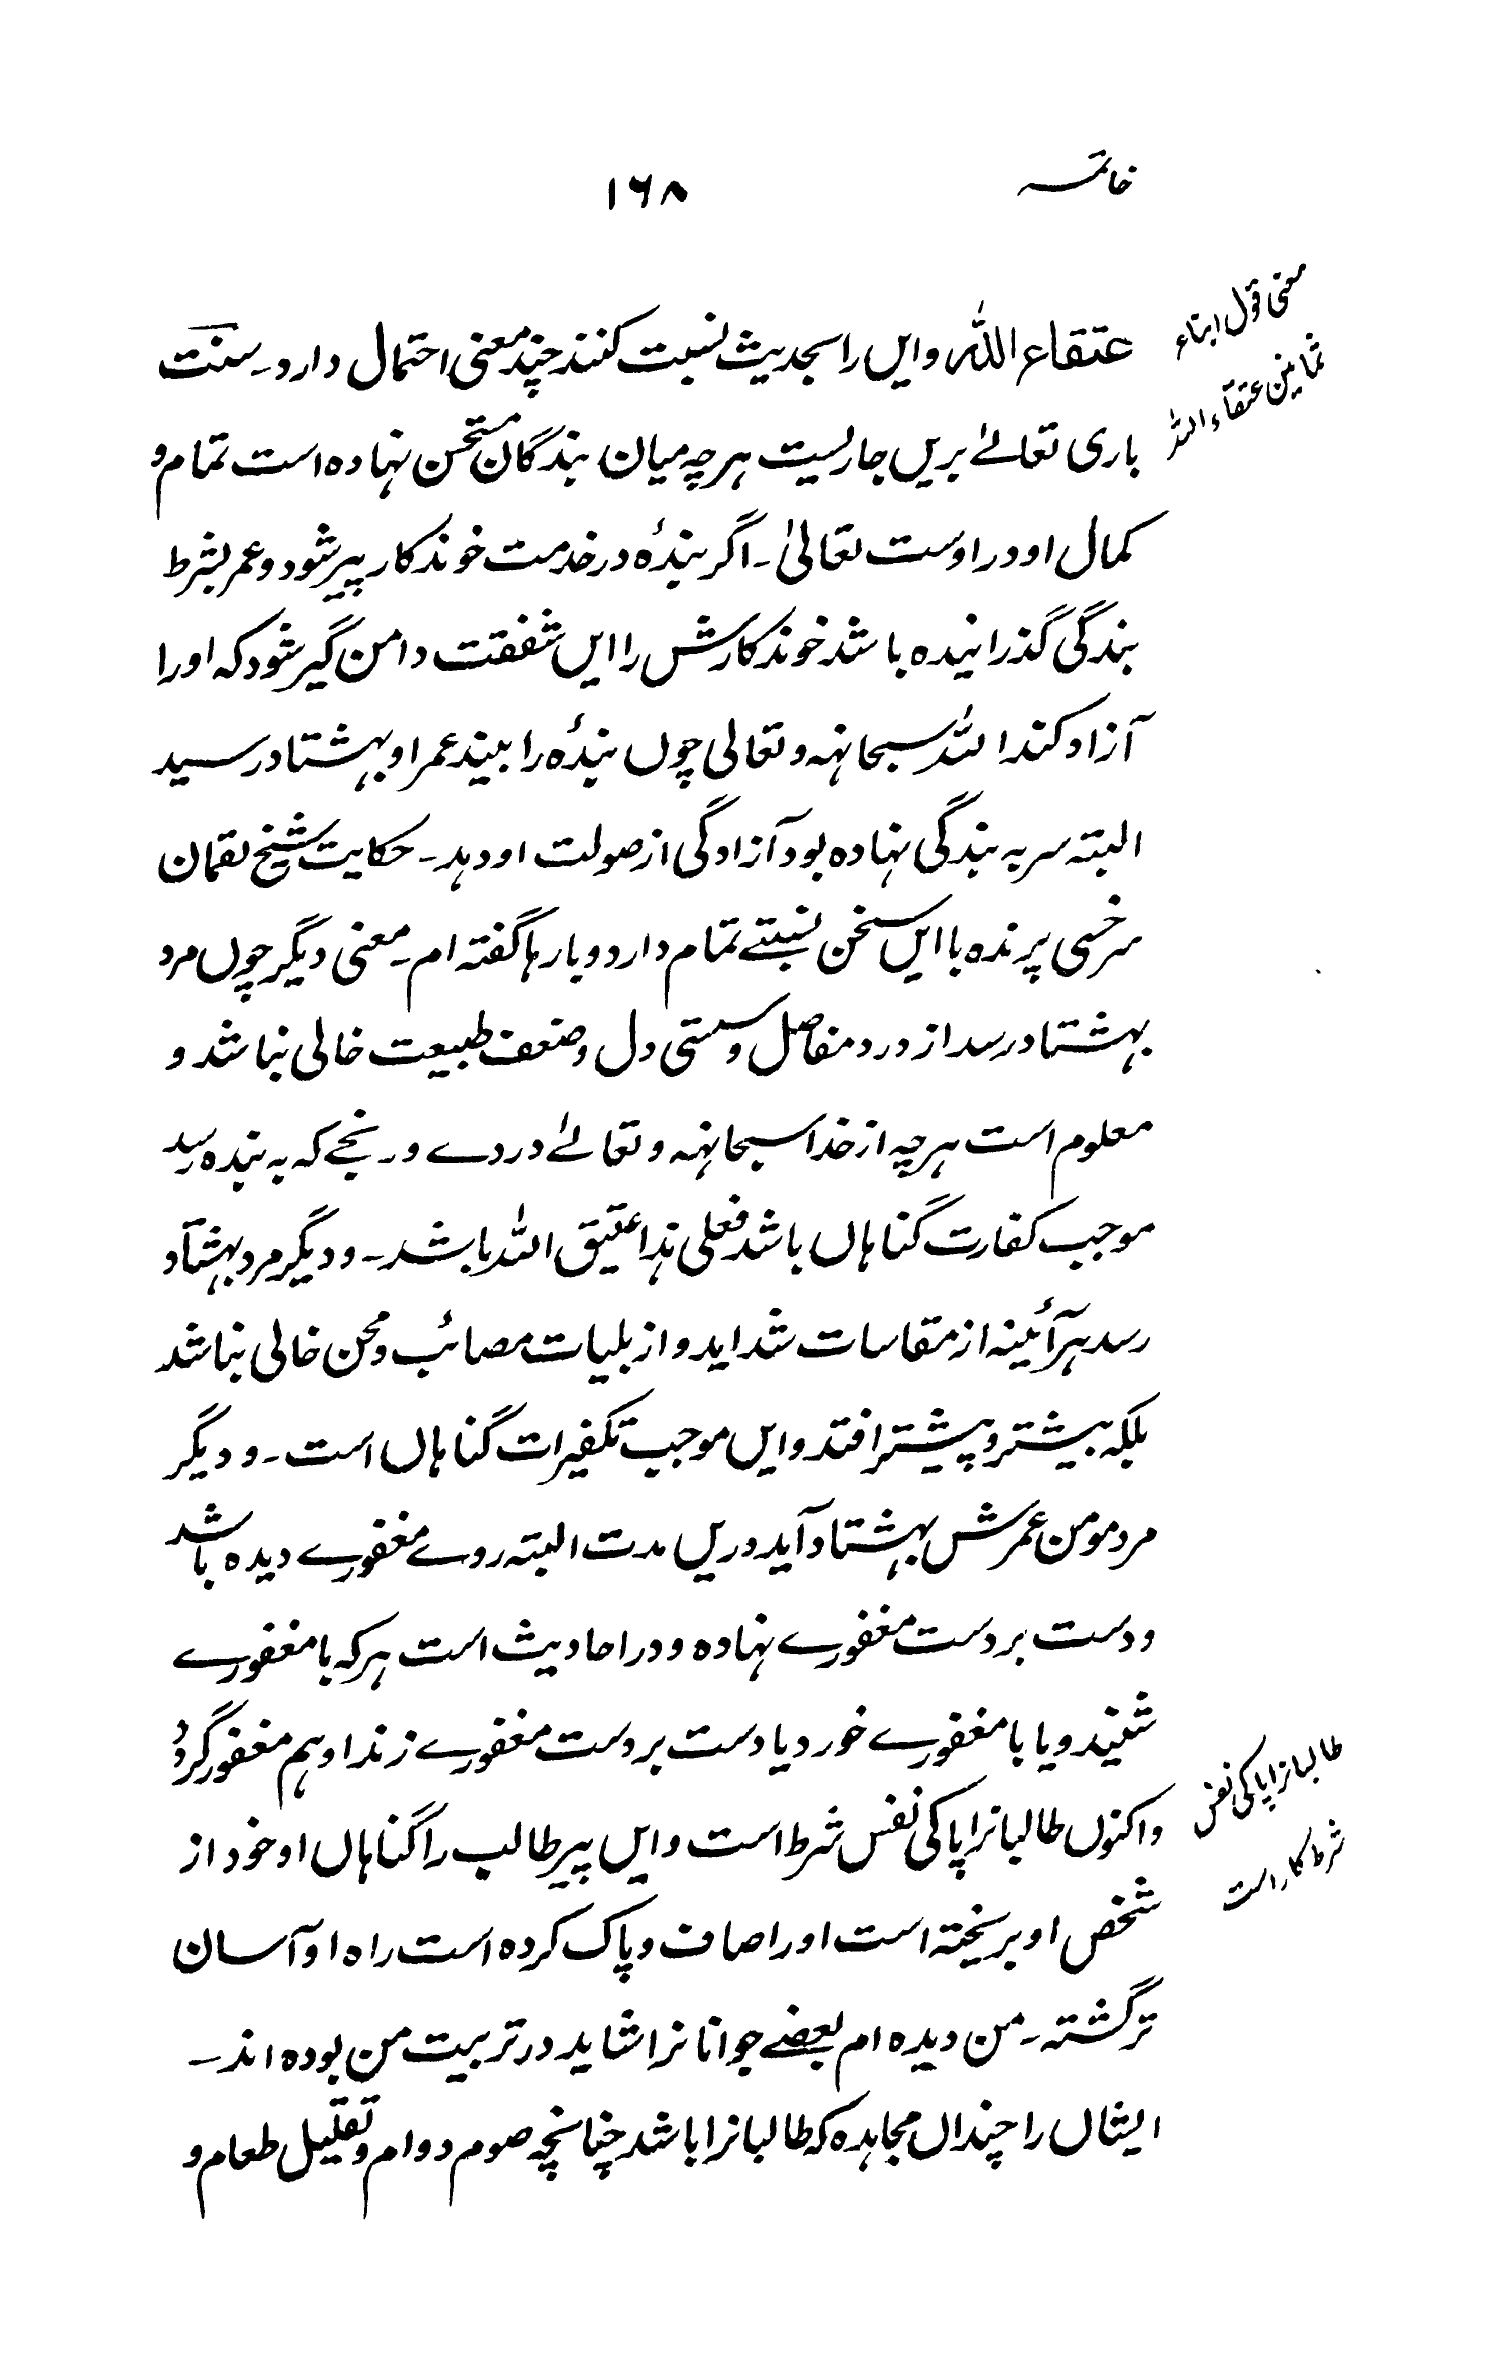 خاتمہ
۱۶۸
معنی قول ابناء
ثمانین عتقاء اللہ
عتقاء اللہ وایں را بحدیث نسبت کنند چند معنی احتمال دارد۔ سنت
باری تعالےٰ بریں جاریست ہرچہ میان بندگان مستحسن نہادہ است تمام و
کمال او در اوست تعالیٰ۔ اگر بندۂ در خدمت خوندکار پیر شود و عمر بشرط
بندگی گذرانیدہ باشد خوندکارش را ایں شفقت دامن گیر شود کہ اورا
آزاد کند اللہ سبحانہ و تعالی چوں بندۂ را بیند عمر او بہشتاد رسید
البتہ سر بہ بندگی نہادہ بود آزادگی از صولت او دہد۔ حکایت شیخ لقمان
سرخسی پرندہ با ایں سخن نسبتے تمام دارد و بارہا گفتہ ام۔ معنی دیگر چوں مرد
بہشتاد رسد از درد مفاصل و سستی دل و ضعف طبیعت خالی نباشد و
معلوم است ہرچہ از خدا سبحانہ و تعالےٰ دردے و رنجے کہ بہ بندہ رسد
موجب کفارت گناہاں باشد فعلی ہذا عتیق اللہ باشد۔ و دیگر مرد بہشتاد
رسد ہر آئینہ از مقاسات شداید و از بلیات مصائب و محن خالی نباشد
بلکہ بیشتر و پیشتر افتد و ایں موجب تکفیرات گناہاں است۔ و دیگر
مرد مومن عمرش بہشتاد آید دریں مدت البتہ روے مغفورے دیدہ باشد
و دست بر دست مغفورے نہادہ و در احادیث است ہر کہ با مغفورے
شیند و یا با مغفورے خورد یا دست بر دست مغفورے زند او ہم مغفور گردد
طالبانرا پاکی نفس
شرط کار است
واکنوں طالبانرا پاکی نفس شرط است و ایں پیر طالب را گناہاں او خود از
شخص او بریختہ است اورا صاف و پاک کردہ است راہ او آسان
تر گشتہ۔ من دیدہ ام بعضے جوانانرا شاید در تربیت من بودہ اند۔
ایشاں را چنداں مجاہدہ کہ طالبانرا باشد چنانچہ صوم دوام و تقلیل طعام و